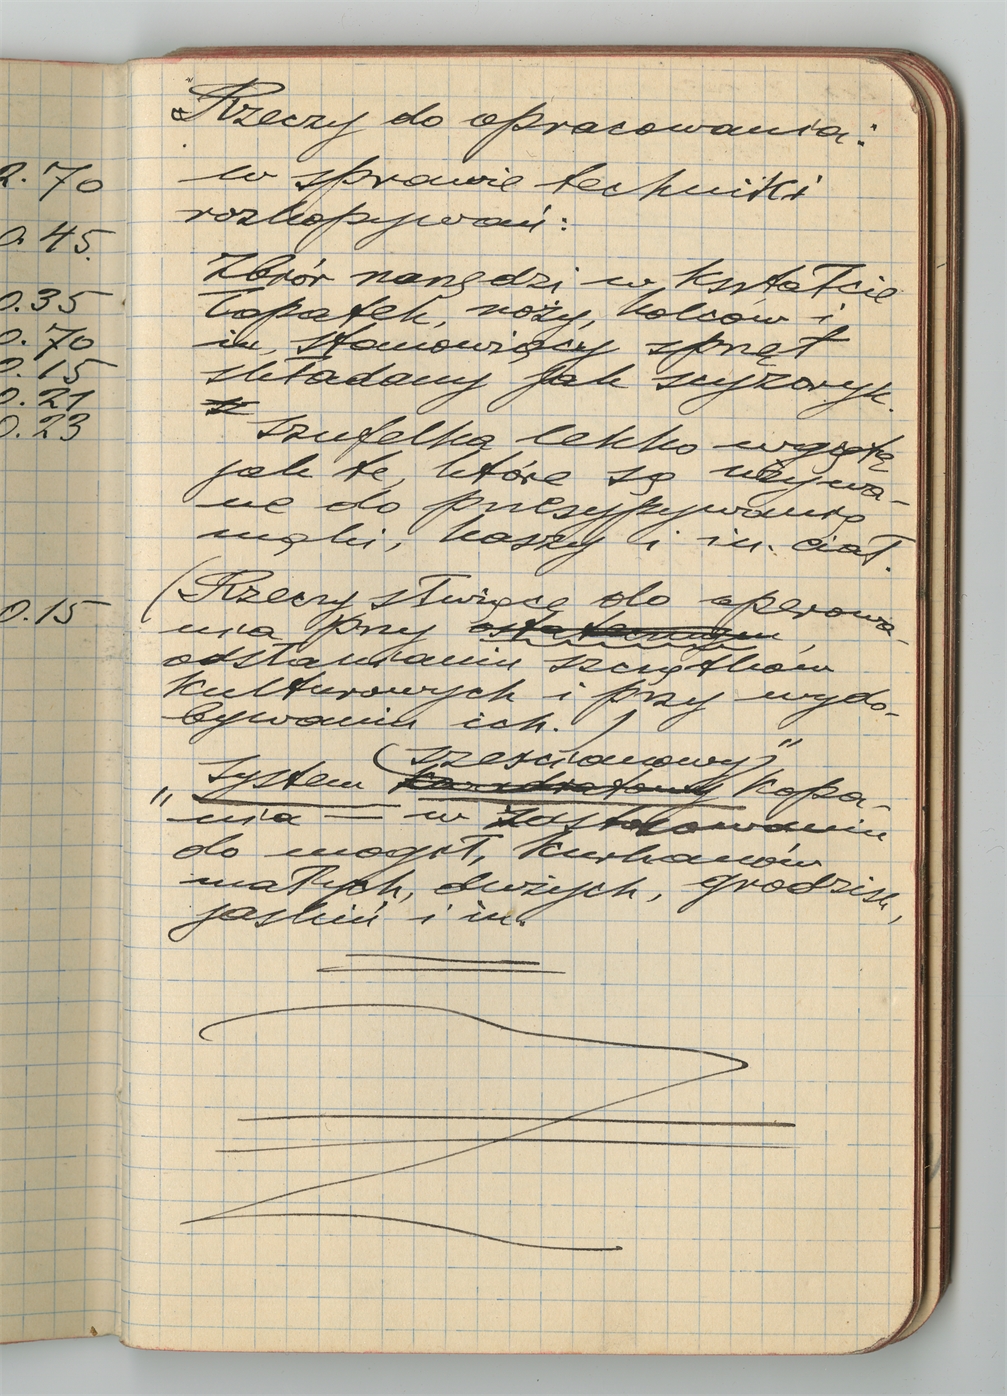 2.70
0.45.
0.35
0.70
0.15
0.21
0.23
0.15
Rzeczy do opracowania:
w sprawie techniki
rozkopywań:
Zbiór narzędzi w kształcie
łopatek, noży, kolców i
in., stanowiący sprzęt
składany jak scyzoryk.
Szufelka lekko wygięta
jak te, które są używa-
ne do przesypywania
mąki, kaszy i in. ciał.
(Rzeczy służące do operowa-
nia przy
odsłanianiu szczątków
kulturowych i przy wydo-
bywaniu ich.)
(sześcianowy)"
„System kwadratowy kopa-
nia — w zastosowaniu
do mogił, kurhanów
małych, dużych, grodzisk,
jaskiń i in.